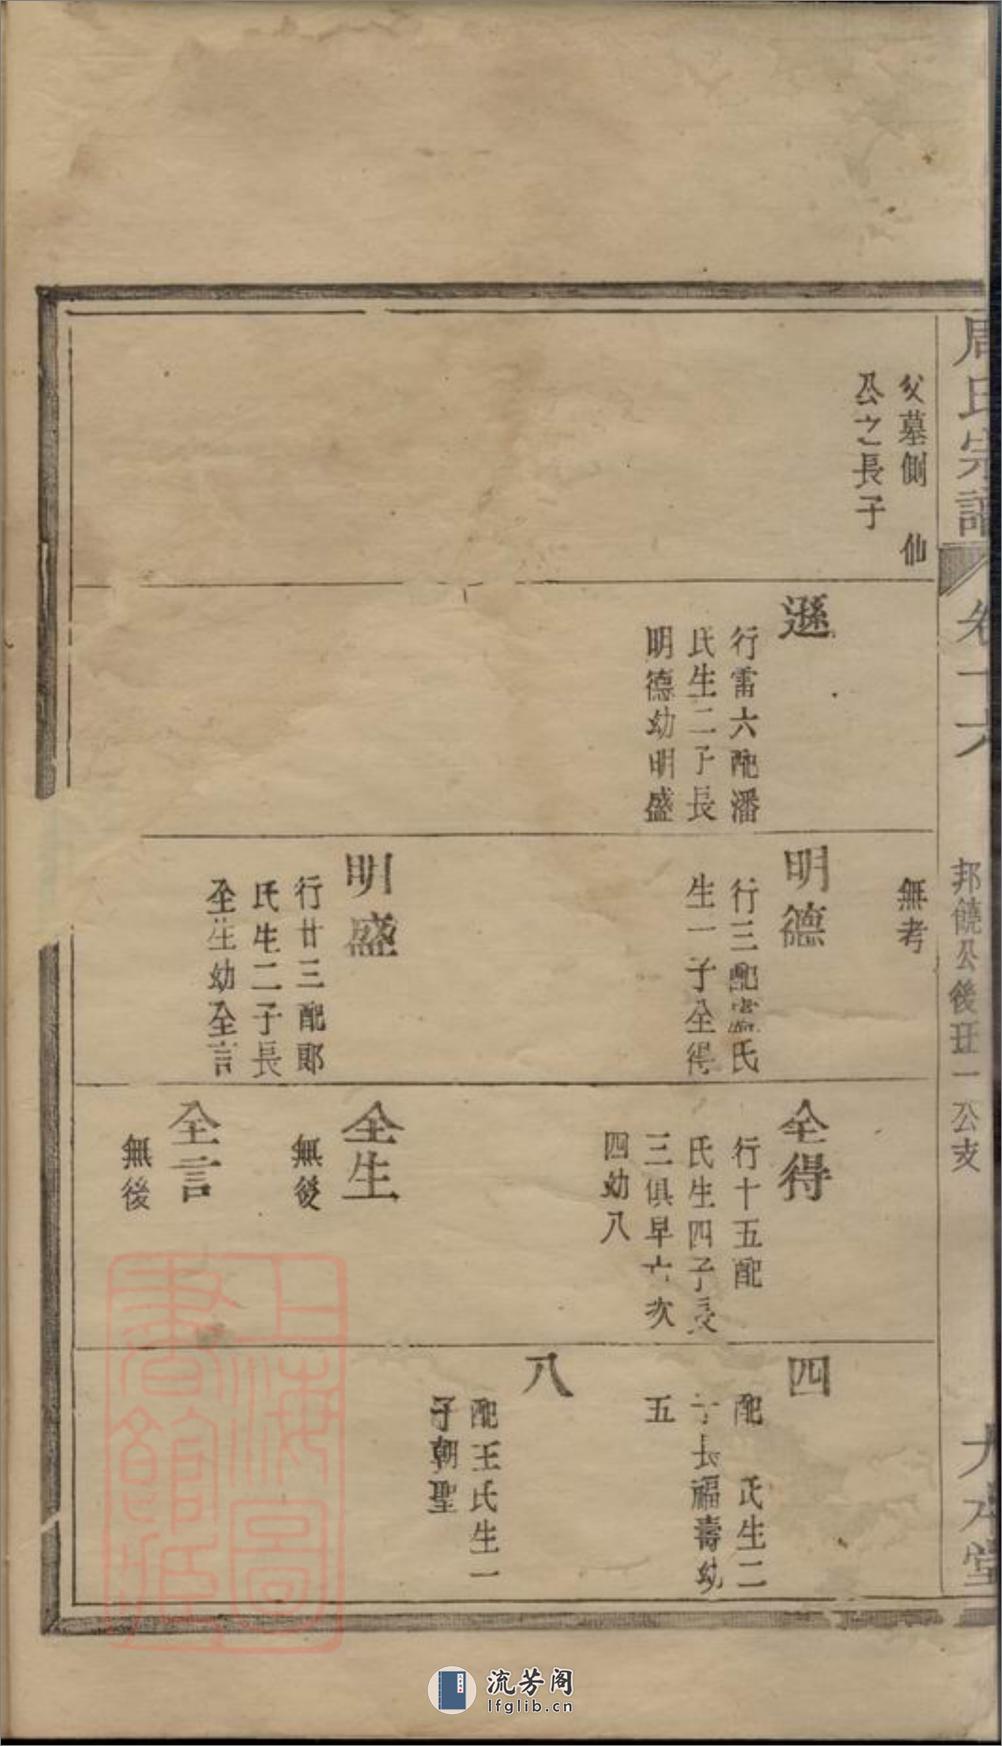 周氏宗譜
卷十六
邦饒公後玨一公支
大本堂
父墓側 仙
公之長子
遜
行雷六配潘
氏生二子長
明德幼明盛
無考
明德
行三配 氏
生一子全得
明盛
行廿三配郎
氏生二子長
全生幼全言
全得
行十五配
氏生四子長
三俱早亡次
四幼八
全生
無後
全言
無後
四
配 氏生二
子長福壽幼
五
八
配王氏生一
子朝聖
上海圖書館藏
流芳阁
lfglib.cn